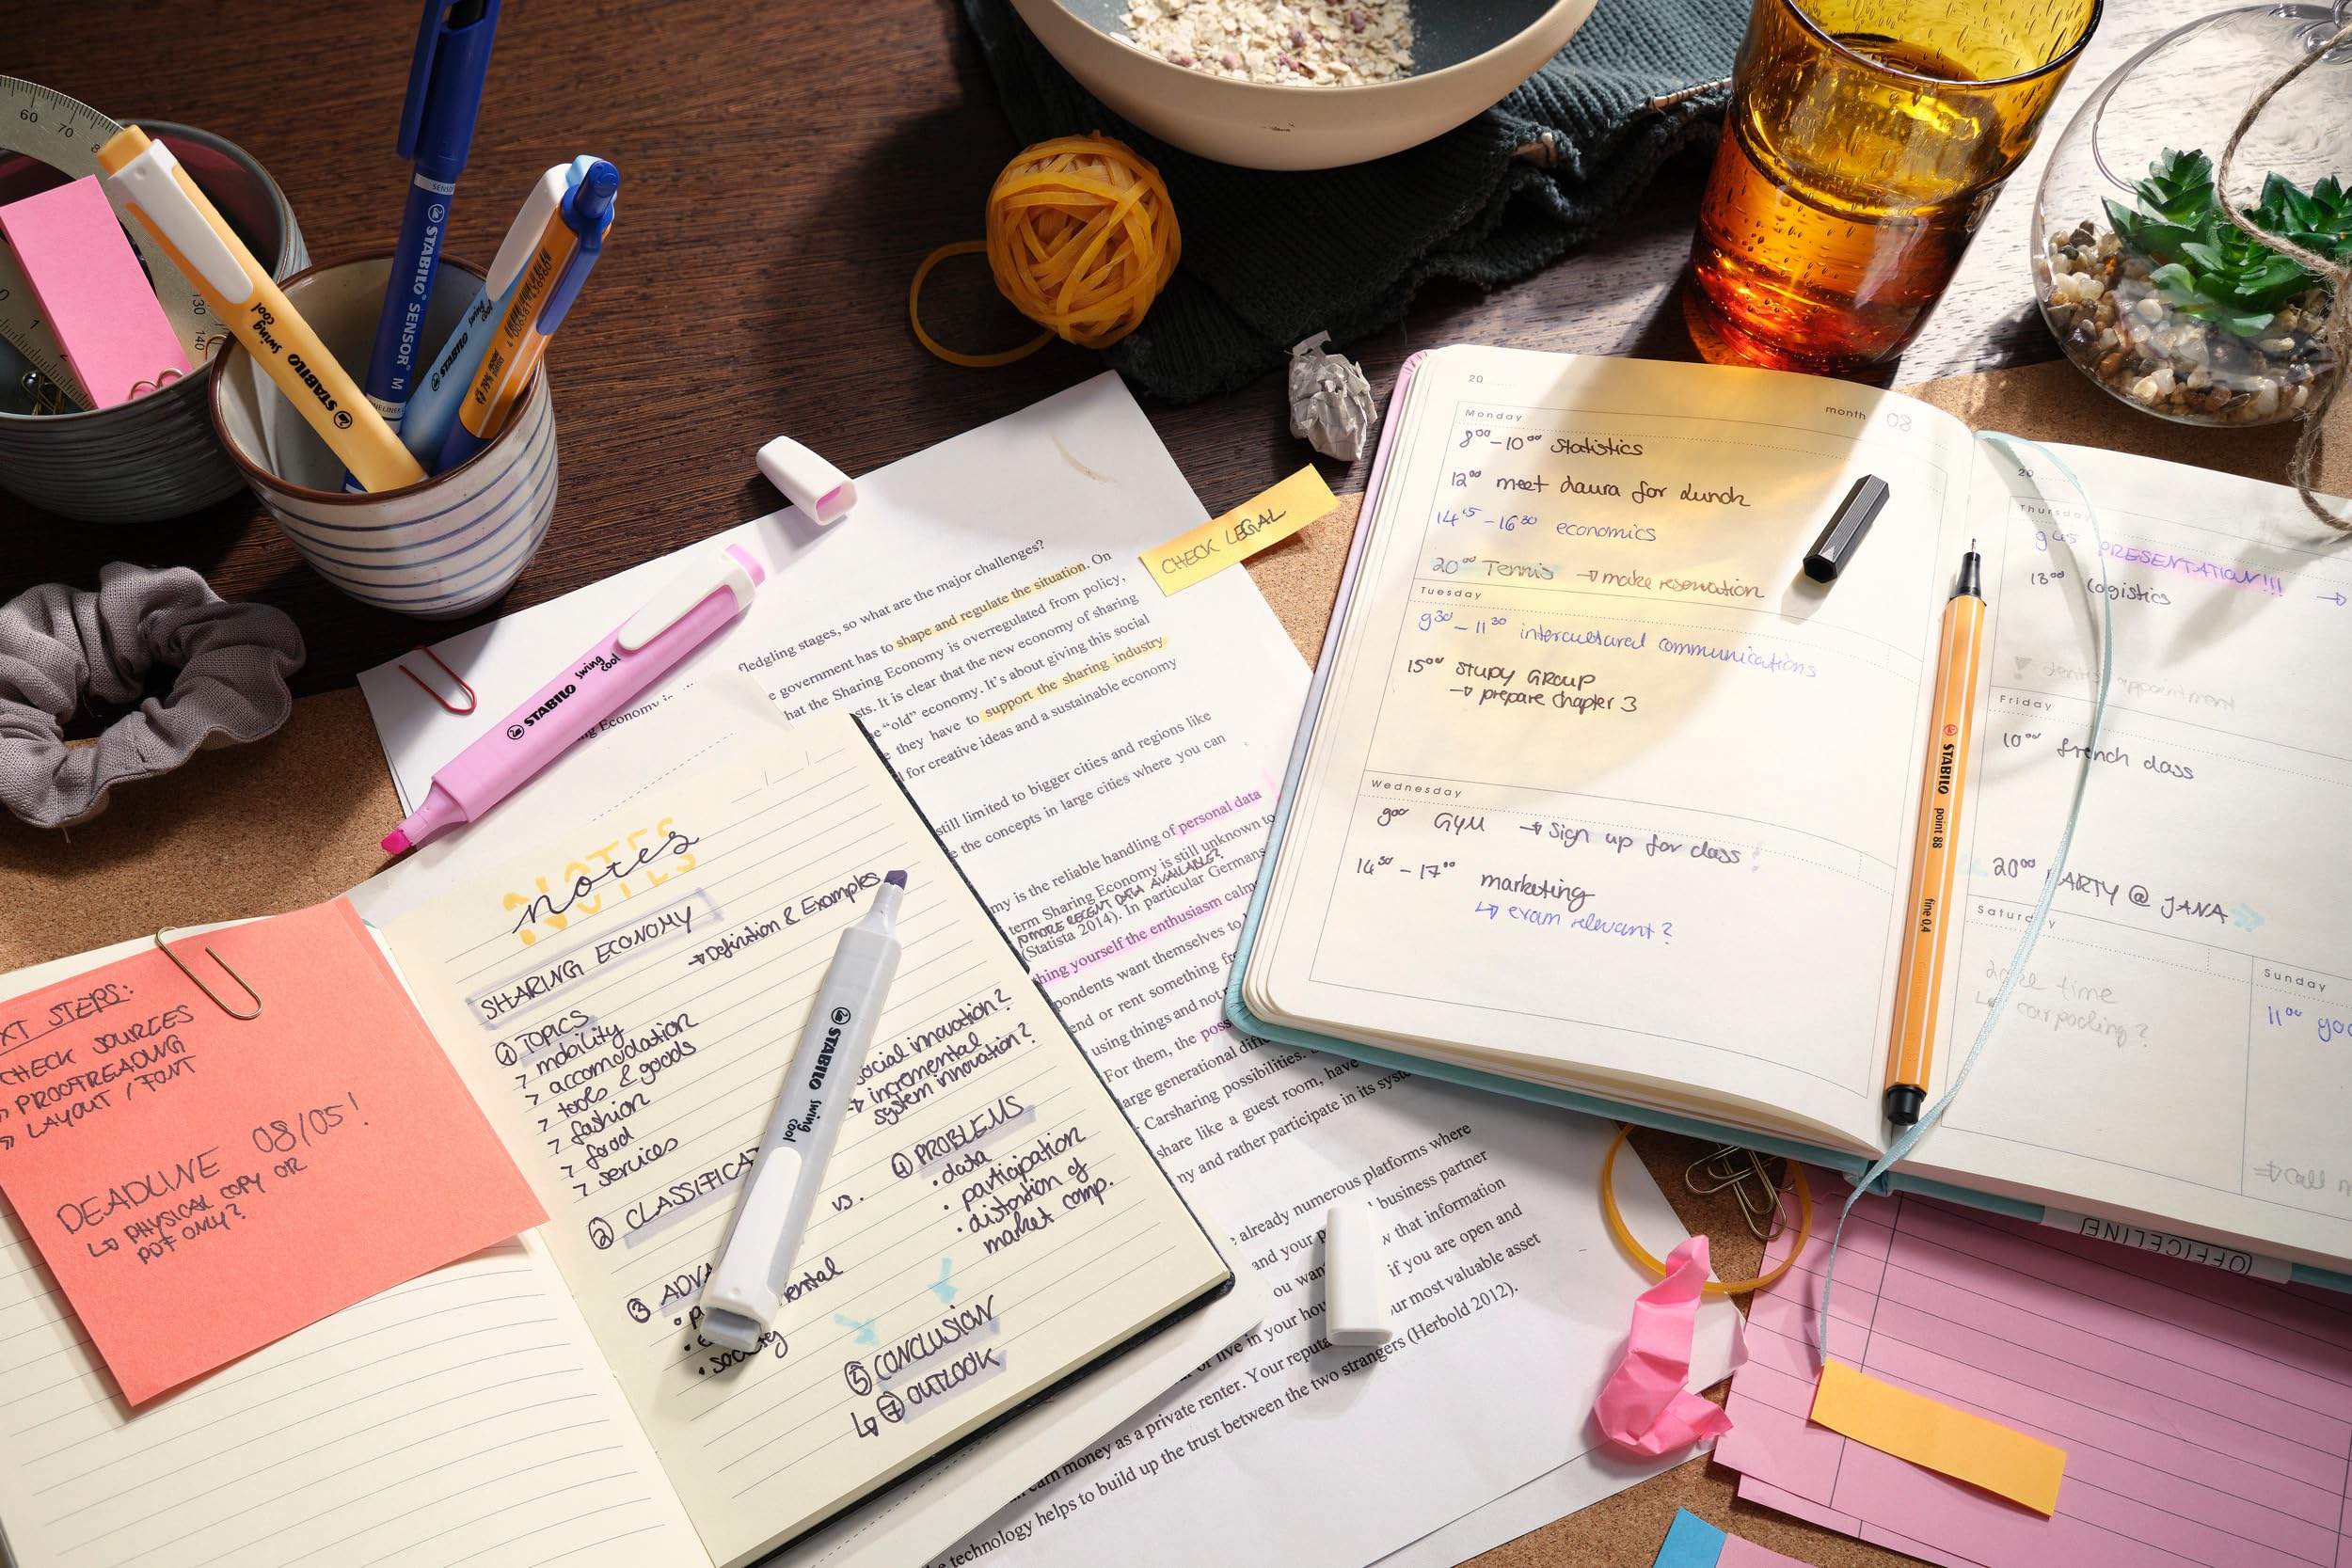 60 70
130 140
STABILO swing cool
STABILO SENSOR M
SENSOR
FINELINER
STABILO swing cool
4006381 436960
STABILO swing cool
fledgling stages, so what are the major challenges?
government has to shape and regulate the situation. On
hat the Sharing Economy is overregulated from policy,
sts. It is clear that the new economy of sharing
"old" economy. It's about giving this social
they have to support the sharing industry
for creative ideas and a sustainable economy
still limited to bigger cities and regions like
the concepts in large cities where you can
my is the reliable handling of personal data
term Sharing Economy is still unknown to
MORE RECENT DATA AVAILABLE?
(Statista 2014). In particular Germans
thing yourself the enthusiasm calm
pondents want themselves to
end or rent something
using things and not
For them, the
large generational
Carsharing possibilities.
share like a guest room, have
ny and rather participate in its
already numerous platforms where
and your business partner
w that information
ou want if you are open and
or live in your your most valuable asset
earn money as a private renter. Your between the two strangers (Herbold 2012).
technology helps to build up the trust
CHECK LEGAL
NOTES
notes
SHARING ECONOMY
→ Definition & Examples
① TOPICS
> mobility
> accomodation
> tools & goods
> fashion
> food
> services
social innovation?
→ incremental
system innovation?
② CLASSIFICAT
vs.
③ ADVA
ental
• society
④ PROBLEMS
• data
• participation
• distortion of
market comp.
⑤ CONCLUSION
↳ ⑦ OUTLOOK
STABILO swing cool
XT STEPS:
CHECK SOURCES
» PROOFREADING
» LAYOUT / FONT
DEADLINE 08/05!
↳ PHYSICAL COPY OR
PDF ONLY?
20
month 08
Monday
8⁰⁰-10⁰⁰ Statistics
12⁰⁰ meet Laura for Lunch
14¹⁵-16³⁰ economics
20⁰⁰ Tennis → make reservation
Tuesday
9³⁰-11³⁰ intercultural communications
15⁰⁰ STUDY GROUP
→ prepare chapter 3
Wednesday
9⁰⁰ GYM → Sign up for class!
14³⁰-17⁰⁰ marketing
↳ exam relevant?
STABILO point 88 fine 0,4
20
Thursday
9⁴⁵ PRESENTATION!!!
13⁰⁰ logistics
appointment
Friday
10⁰⁰ french class
20⁰⁰ PARTY @ JANA
Saturday
time
↳ carpooling?
Sunday
11⁰⁰
call
OFFICELINE